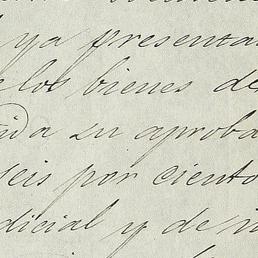 ya presenta
los bienes de
da su aproba
seis por ciento
dicial y de in